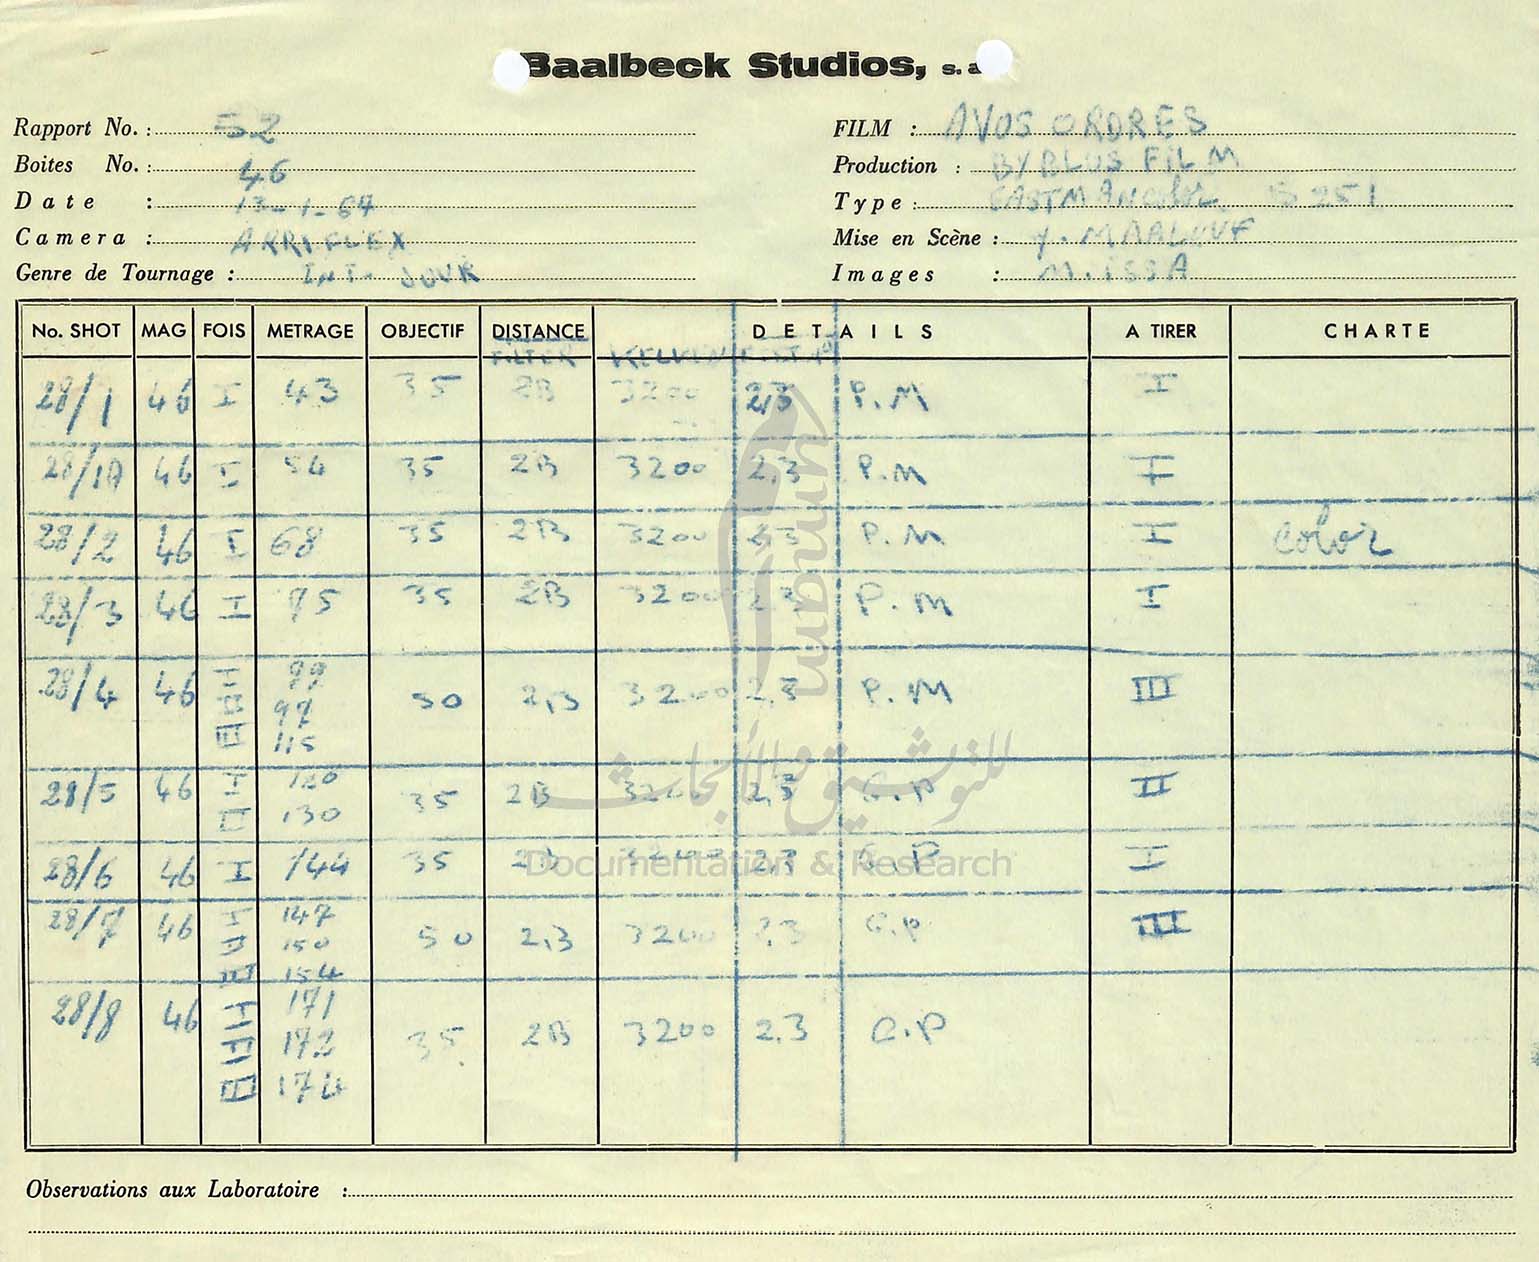 Baalbeck Studios, s. a
Rapport No. : 52
FILM : AVOS ORDRES
Boites No. : 46
Production : BYBLOS FILM
Date : 13-1-64
Type : EASTMANColor 5251
Camera : ARRIFLEX
Mise en Scène : y. MAALOUF
Genre de Tournage : INT. JOUR
Images : M. ISSA
No. SHOT MAG FOIS METRAGE OBJECTIF DISTANCE DETAILS A TIRER CHARTE
FILTER KELVEN
28/1 46 I 43 35 2B 3200 2,3 P.M I
28/1A 46 I 54 35 2B 3200 2,3 P.M I
28/2 46 I 68 35 2B 3200 2,3 P.M I color
28/3 46 I 75 35 2B 3200 2,3 P.M I
28/4 46 I 99 50 2,3 3200 2,3 P.M III
II 97
III 115
28/5 46 I 120 35 2B 3200 2,3 G.P II
II 130
28/6 46 I 144 35 2B 3200 2,3 G.P I
28/7 46 I 147 50 2,3 3200 2,3 G.P III
II 150
III 154
28/8 46 I 171 35 2B 3200 2.3 G.P
II 172
III 174
Observations aux Laboratoire :
umam
للتوثيق والأبحاث
Documentation & Research